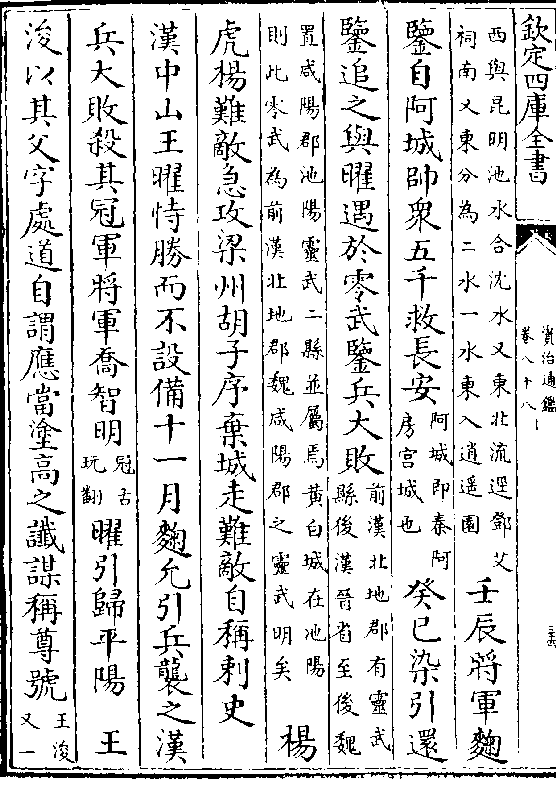 欽定四庫全書
資治通鑑
卷八十八
三十六
西與昆明池水合沈水又東北流逕鄧艾
祠南又東分為二水一水東入逍遥園
壬辰將軍麴
鑒自阿城帥衆五千救長安
阿城即秦阿
房宫城也
癸巳染引還
鑒追之與曜遇於零武鑒兵大敗
前漢北地郡有靈武
縣後漢晉省至後魏
置咸陽郡池陽靈武二縣並屬焉黄白城在池陽
則此零武為前漢北地郡魏咸陽郡之靈武明矣
楊
虎楊難敵急攻梁州胡子序棄城走難敵自稱刺史
漢中山王曜恃勝而不設備十一月麴允引兵襲之漢
兵大敗殺其冠軍將軍喬智明
冠古
玩翻
曜引歸平陽
王
浚以其父字處道自謂應當塗高之讖謀稱尊號
王浚
又一